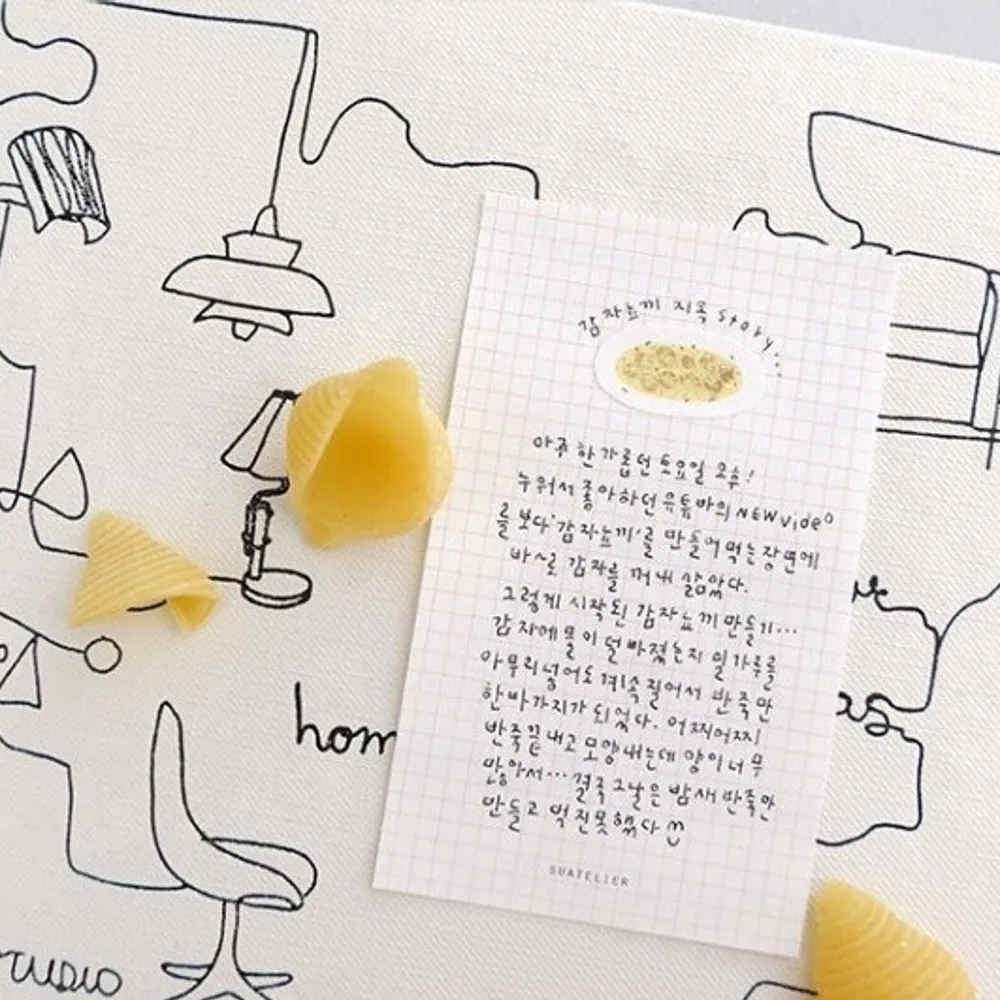 감자뇨끼 지옥 story...
아주 한가롭던 토요일 오후!
누워서 좋아하던 유튜바의 NEW video
를 보다 '감자뇨끼'를 만들어 먹는장면에
바~로 감자를 꺼내 삶았다.
그렇게 시작된 감자뇨끼 만들기...
감자에 물이 덜 빠졌는지 밀가루를
아무리넣어도 계속 질어서 반죽만
한바가지가 되었다. 어찌어찌
반죽끝내고 모양내는데 양이 너무
많아서... 결국 그날은 밤새 반죽만
만들고 먹진못했다
SUATELIER
hom